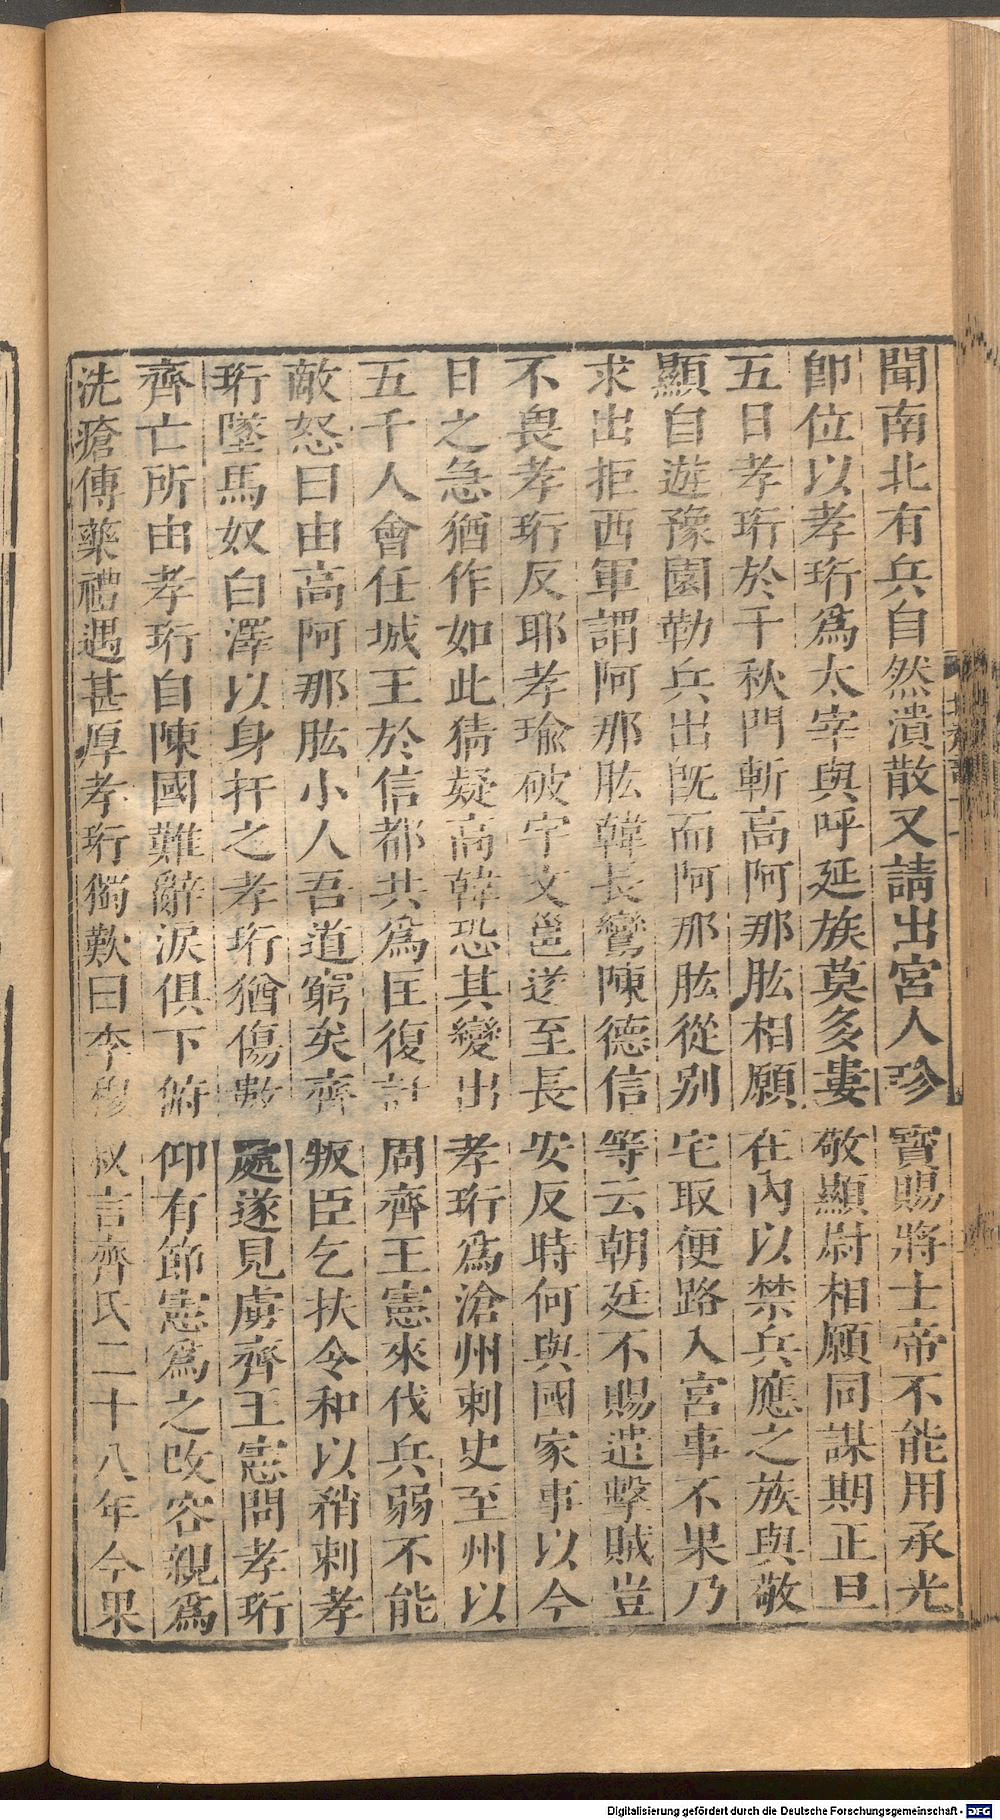 聞南北有兵自然潰散又請出宮人珍寶賜將士帝不能用承光
卽位以孝珩爲太宰與呼延族莫多婁敬顯尉相願同謀期正旦
五日孝珩於千秋門斬高阿那肱相願在內以禁兵應之族與敬
顯自遊豫園勒兵出旣而阿那肱從别宅取便路入宮事不果乃
求出拒西軍謂阿那肱韓長鸞陳德信等云朝廷不賜遣擊賊豈
不畏孝珩反耶孝瑜破宇文邕遂至長安反時何與國家事以今
日之急猶作如此猜疑高韓恐其變出孝珩爲滄州刺史至州以
五千人會任城王於信都共爲匡復計周齊王憲來伐兵弱不能
敵怒曰由高阿那肱小人吾道窮矣齊叛臣乞扶令和以矟刺孝
珩墜馬奴白澤以身扞之孝珩猶傷數處遂見虜齊王憲問孝珩
齊亡所由孝珩自陳國難辭淚俱下俯仰有節憲爲之改容親爲
洗瘡傳藥禮遇甚厚孝珩獨歎曰李穆叔言齊氏二十八年今果
Digitalisierung gefördert durch die Deutsche Forschungsgemeinschaft - DFG